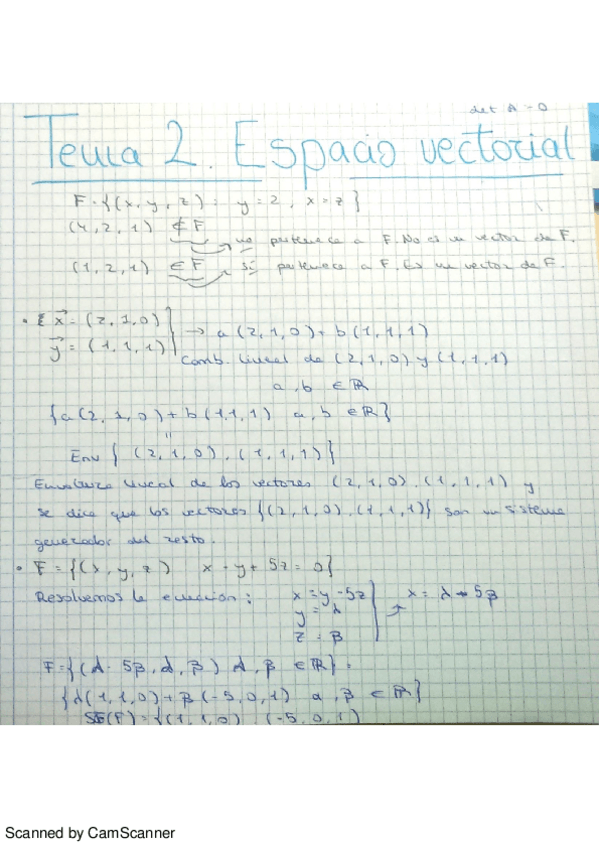 det A = 0
Tema 2. Espacio vectorial
F = {(x, y, z) : y = 2, x = z}
(4, 2, 1) ∉ F → no pertenece a F. No es un vector de F.
(1, 2, 1) ∈ F → sí pertenece a F. Es un vector de F.
• x⃗ = (2, 1, 0) } → a (2, 1, 0) + b (1, 1, 1)
y⃗ = (1, 1, 1) Comb. lineal de (2, 1, 0) y (1, 1, 1)
a, b ∈ ℝ
{a (2, 1, 0) + b (1, 1, 1) a, b ∈ ℝ}
"
Env { (2, 1, 0), (1, 1, 1) }
Envoltura lineal de los vectores (2, 1, 0), (1, 1, 1) y
se dice que los vectores {(2, 1, 0), (1, 1, 1)} son un sistema
generador del resto.
• F = {(x, y, z) x - y + 5z = 0}
Resolvemos la ecuación: x = y - 5z
y = λ
z = β
x = λ - 5β
F = {(λ - 5β, λ, β) λ, β ∈ ℝ} =
{λ(1, 1, 0) + β (-5, 0, 1) a, β ∈ ℝ}
SG(F) = {(1, 1, 0), (-5, 0, 1)
Scanned by CamScanner